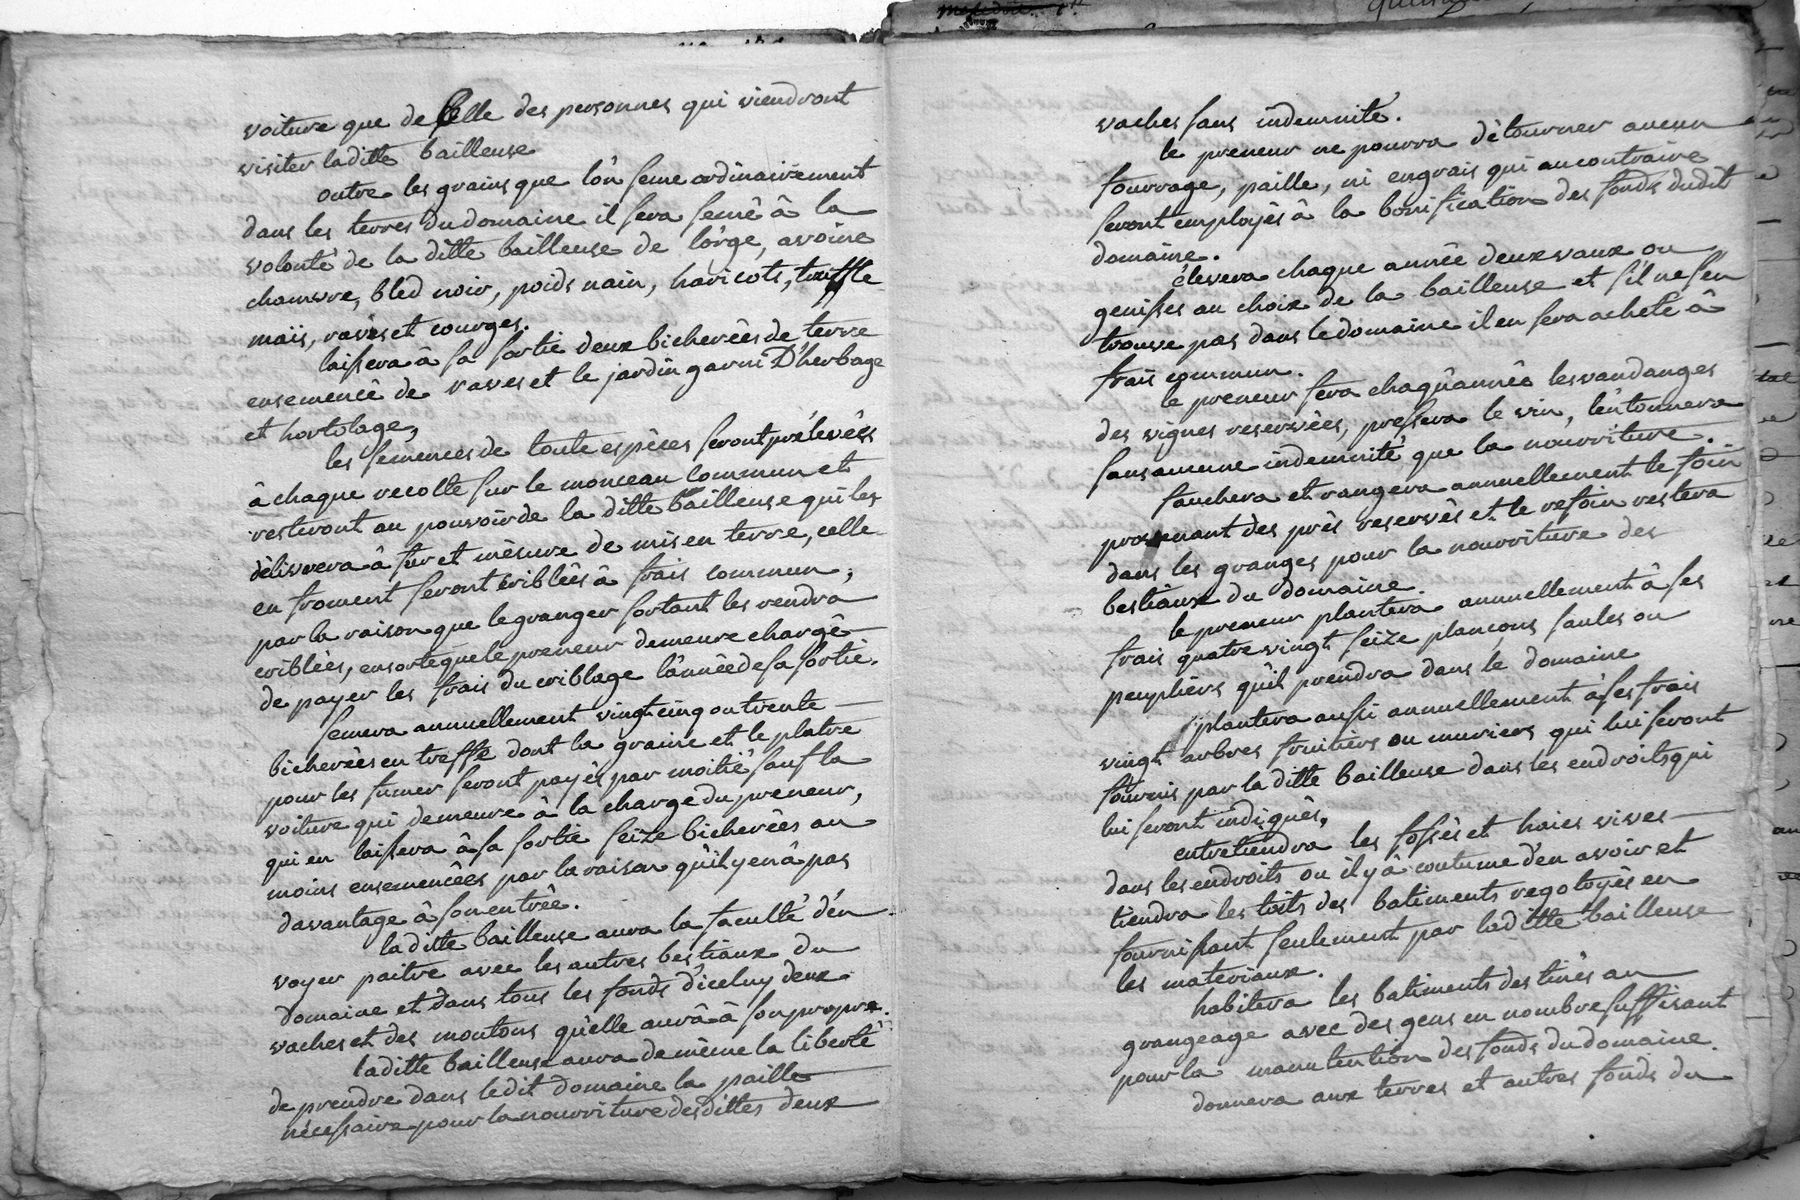 voiture que de Celle des personnes qui viendront
visiter laditte bailleuse
outre les grains que l'ón seme ordinairement
dans les terres du domaine il sera semé â la
volonté de la ditte bailleuse de l'órge, avoine
chanvre, bled noir, poids nain, haricots, truffle
maïs, raves et courges.
laissera â sa sortie deux bicherées de terre
ensemencé de raves et le jardin garni D'herbage
et hortolage,
les semences de toute espèces seront prélevéés
â chaque recolte sur le monceau commun et
resteront au pouvoir de la ditte bailleuse qui les
délivrera â fur et mésure de mis en terre, celle
en froment seront criblées â frais commun,
par la raison que le granger sortant les rendra
criblées, ensorte que le preneur demeure chargé
de payer les frais du criblage l'ánnée de sa sortie.
semera annuellement vingt cinq ou trente
bicherées en treffle dont la graine et le platre
pour les fumer seront payés par moitié sauf la
voiture qui demeure â la charge du preneur,
qui en laissera â sa sortie seize bicherées au
moins ensemencées par la raison qu'il y en â pas
davantage â son entrée.
la ditte bailleuse aura la faculté d'én
voyer paitre avec les autres bestiaux du
domaine et dans tous les fonds d'iceluy deux
vaches et des moutons qu'elle aurâ â son propre.
laditte bailleuse aura de mème la liberté
de prendre dans ledit domaine la paille
nécessaire pour la nourriture desdittes deux
vaches sans indemnité.
le preneur ne pourra détourner aucun
fourrage, paille, ni engrais qui au contraire
seront employés â la bonification des fonds dudit
domaine.
élevera chaque année deux vaux ou
genisses au choix de la bailleuse et s'il ne s'en
trouve pas dans le domaine il en sera acheté â
frais commun.
le preneur fera chaqu'année les vandanges
des vignes reservées, pressera le vin, l'éntonnera
sans aucune indemnité que la nourriture.
fauchera et rangera annuellement le foin
provenant des prés reservés et le refoin restera
dans les granges pour la nourriture des
bestiaux du domaine.
le preneur plantera annuellement â ses
frais quatre vingt seize plançons saules ou
peupliers qu'il prendra dans le domaine
plantera aussi annuellement â ses frais
vingt arbres fruitiers ou muriers qui lui seront
fournis par la ditte bailleuse dans les endroits qui
lui seront indiqués,
entretiendra les fossés et haies vives
dans les endroits ou il y â coutume d'en avoir et
tiendra les toits des batiments regotoyés en
fournissant seulement par laditte bailleuse
les materiaux.
habitera les batiments destinés au
grangeage avec des gens en nombre suffisant
pour la manutention des fonds du domaine.
donnera aux terres et autres fonds du